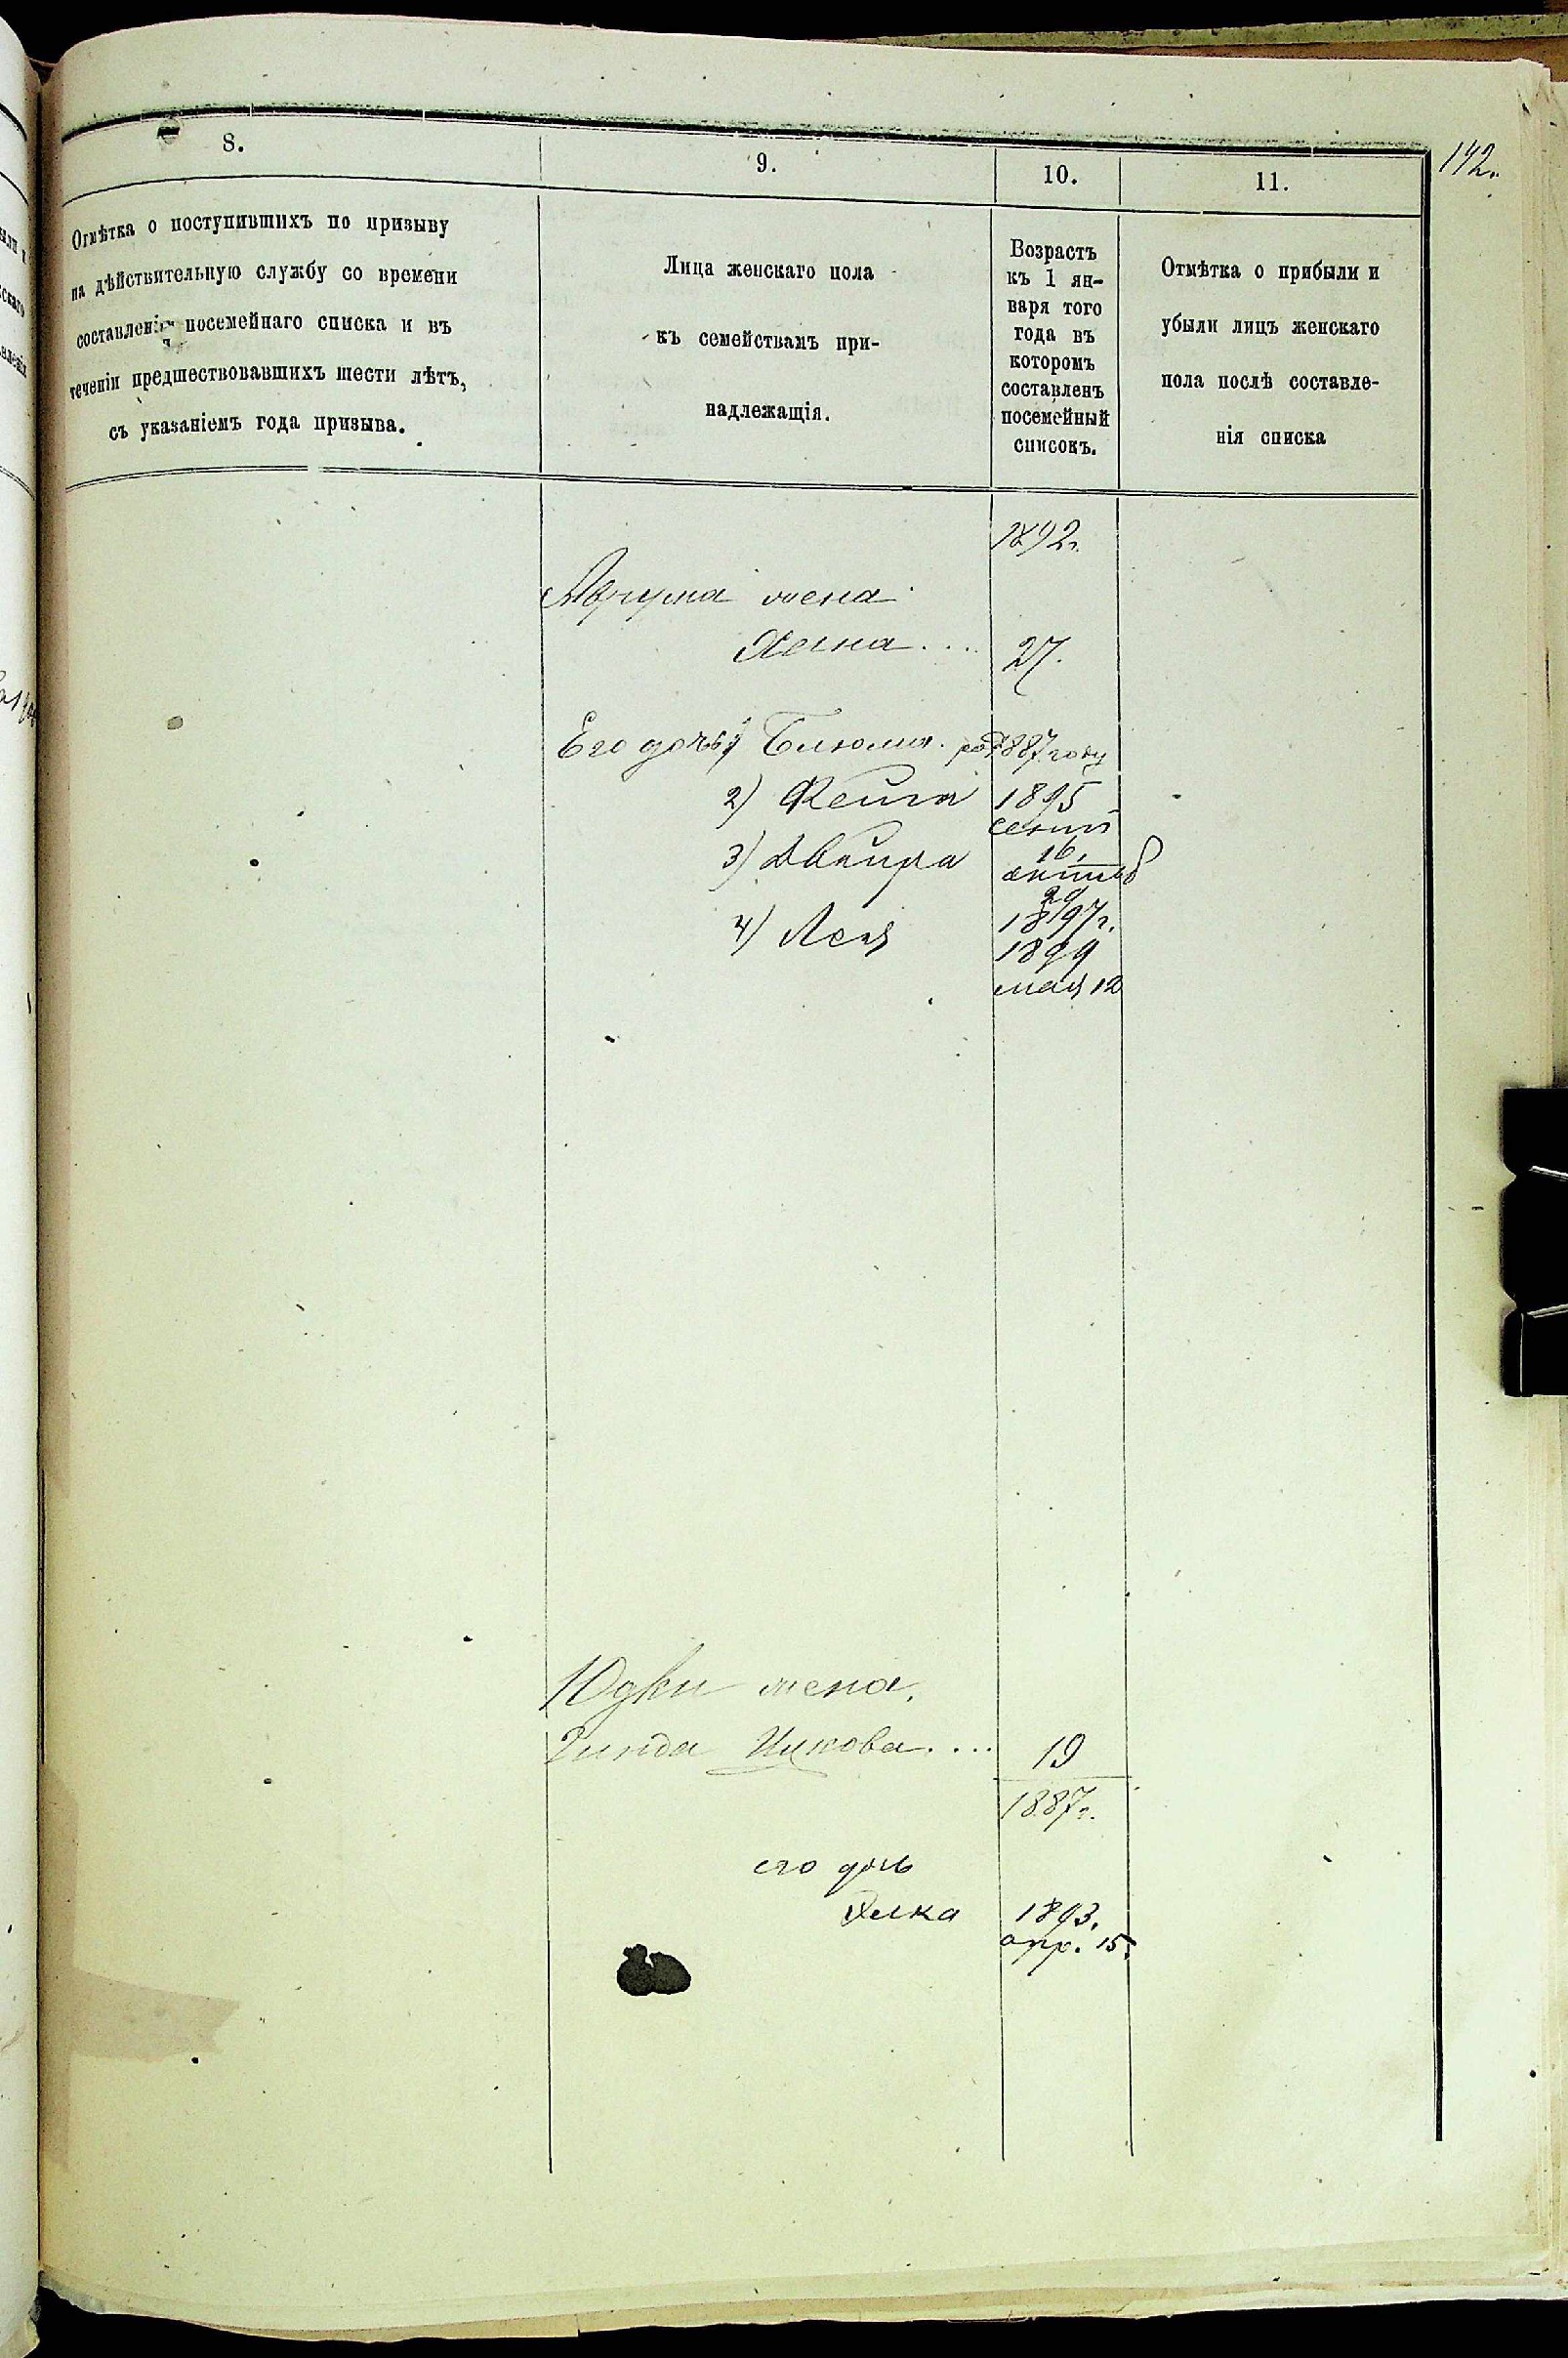 142.
8.
9.
10.
11.
Отмѣтка о поступившихъ по призыву
на дѣйствительную службу со времени
составленія посемейнаго списка и въ
теченіи предшествовавшихъ шести лѣтъ,
съ указаніемъ года призыва.
Лица женскаго пола
къ семействамъ при-
надлежащія.
Возрастъ
къ 1 ян-
варя того
года въ
котомъ
составленъ
посемейный
списокъ.
Отмѣтка о прибыли и
убыли лицъ женскаго
пола послѣ составле-
нія списка
1892г.
Абрума жена
Хасна... 27.
Его дочь 1) Блюма. род 1887 году
2) Фейга 1895
сентяб
16,
3) Двейра октяб
29
1897г.
4) Лея 1899
мая 12
Юдки жена,
Зинда Ицкова... 19
1887г.
его дочь
Элка 1893.
апр. 15.